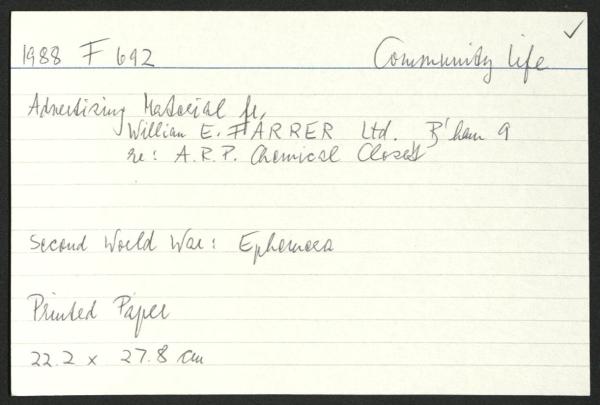 1988 F 692
Community life
Advertising Material fr.
William E. FARRER Ltd. B'ham 9
re: A.R.P. Chemical Closet
Second World War: Ephemera
Printed Paper
22.2 x 27.8 cm